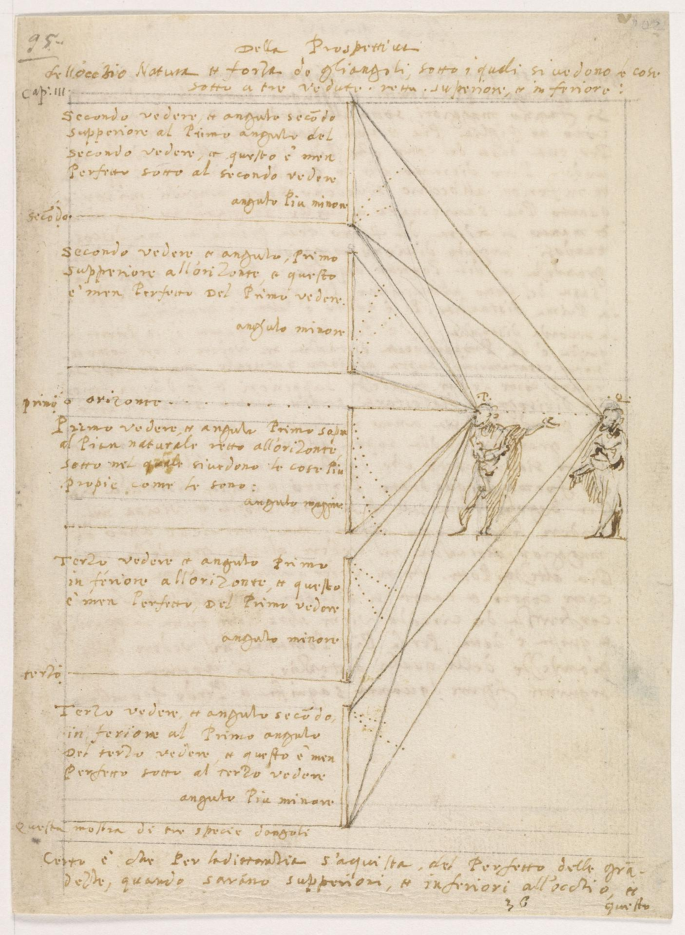 95
102
Della Prospettiva
dell'occhio Natura et forza de gliangoli, sotto i quali si vedono e cose
Cap. III. sotto a tre vedute. retta. superiore, et inferiore:
Secondo vedere, et angulo secōdo
supperiore al Primo angulo del
secondo vedere, et questo è men
Perfetto sotto al secondo vedere
angulo Piu minore
secōdo
Secondo vedere et angulo, Primo
supperiore all'orizonte et questo
è men Perfetto Del Primo vedere.
angulo minore
P.
Q.
primo o orizonte
Primo vedere, et angulo Primo sopra
al Pian naturale retto all'orizonte,
sotto nel quale si vedono le cose Piu
Propie come le sono:
angulo maggiore
Terzo vedere et angulo Primo
inferiore all'orizonte, et questo
è men Perfetto, Del Primo vedere
angulo minore
terzo
Terzo vedere, et angulo secōdo,
inferiore al Primo angulo
Del terzo vedere, et questo è men
Perfetto sotto, al terzo vedere
angulo Piu minore
Questa mostra di tre specie d'angoli
Certo è che Per la distantia s'aquista, del Perfetto delle gran-
dezze, quando sarano supperiori, et inferiori all'occhio, et
3 G questo